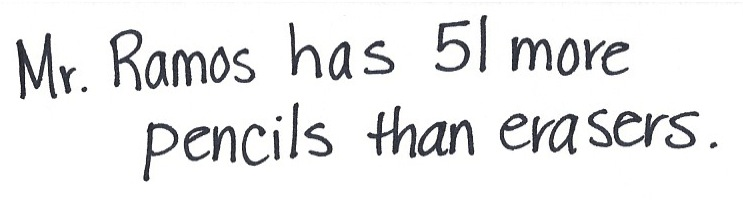 Mr. Ramos has 51 more
pencils than erasers.